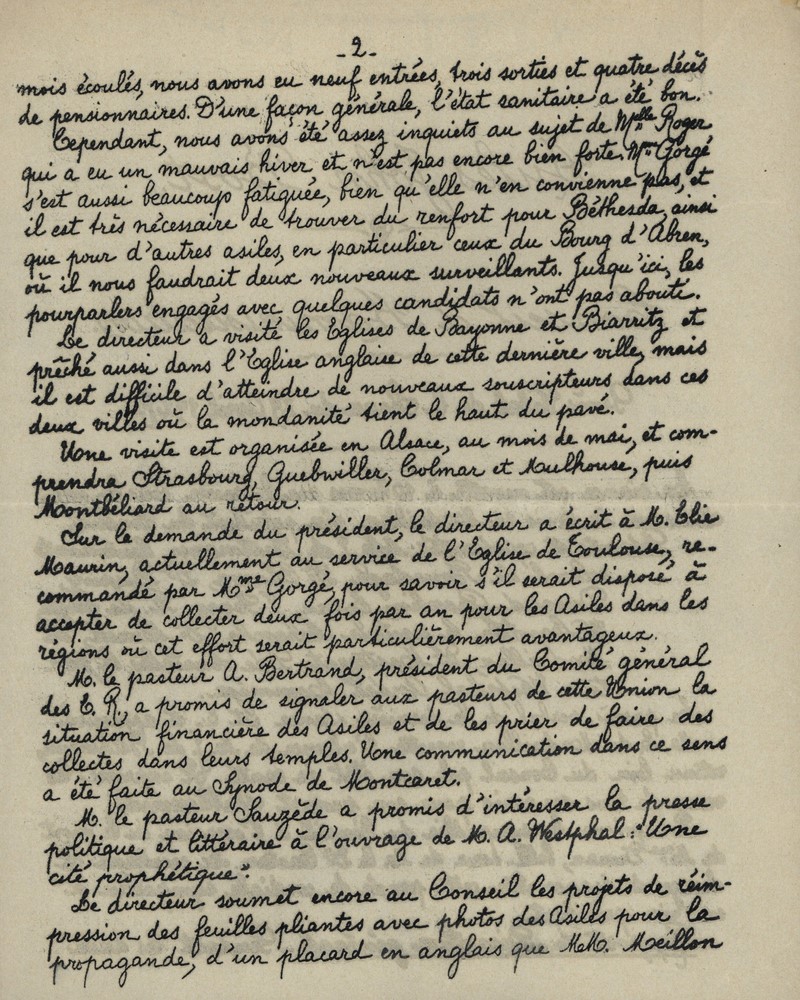 -2-
mois écoulés, nous avons eu neuf entrées, trois sorties et quatre décès
de pensionnaires. D'une façon générale, l'état sanitaire a été bon.
Cependant, nous avons été assez inquiets au sujet de Melle Roger
qui a eu un mauvais hiver et n'est pas encore bien forte. Mme Gorgé
s'est aussi beaucoup fatiguée, bien qu'elle n'en convienne pas, et
il est très nécessaire de trouver du renfort pour Béthesda, ainsi
que pour d'autres asiles, en particulier ceux du Bourg d'Abren,
où il nous faudrait deux nouveaux surveillants. Jusqu'ici, les
pourparlers engagés avec quelques candidats n'ont pas abouti.
Le directeur a visité les Eglises de Bayonne et Biarritz et
prêché aussi dans l'Eglise anglaise de cette dernière ville, mais
il est difficile d'atteindre de nouveaux souscripteurs dans ces
deux villes où la mondanité tient le haut du pavé.
Une visite est organisée en Alsace, au mois de mai, et com-
prendra Strasbourg, Guebwiller, Colmar et Mulhouse, puis
Montbéliard au retour.
Sur le demande du président, le directeur a écrit à M. Elie
Maurin, actuellement au service de l'Eglise de Toulouse, re-
commandé par Mme Gorgé, pour savoir s'il serait disposé à
accepter de collecter deux fois par an pour les Asiles dans les
régions où cet effort serait particulièrement avantageux.
M. le pasteur A. Bertrand, président du Comité général
des E. R., a promis de signaler aux pasteurs de cette Union la
situation financière des Asiles et de les prier de faire des
collectes dans leurs temples. Une communication dans ce sens
a été faite au Synode de Montcaret.
M. le pasteur Sauzède a promis d'intéresser la presse
politique et littéraire à l'ouvrage de M. A. Westphal: "Une
cité prophétique".
Le directeur soumet encore au Conseil les projets de réim-
pression des feuilles pliantes avec photos des Asiles pour la
propagande, d'un placard en anglais que MM. Meillon